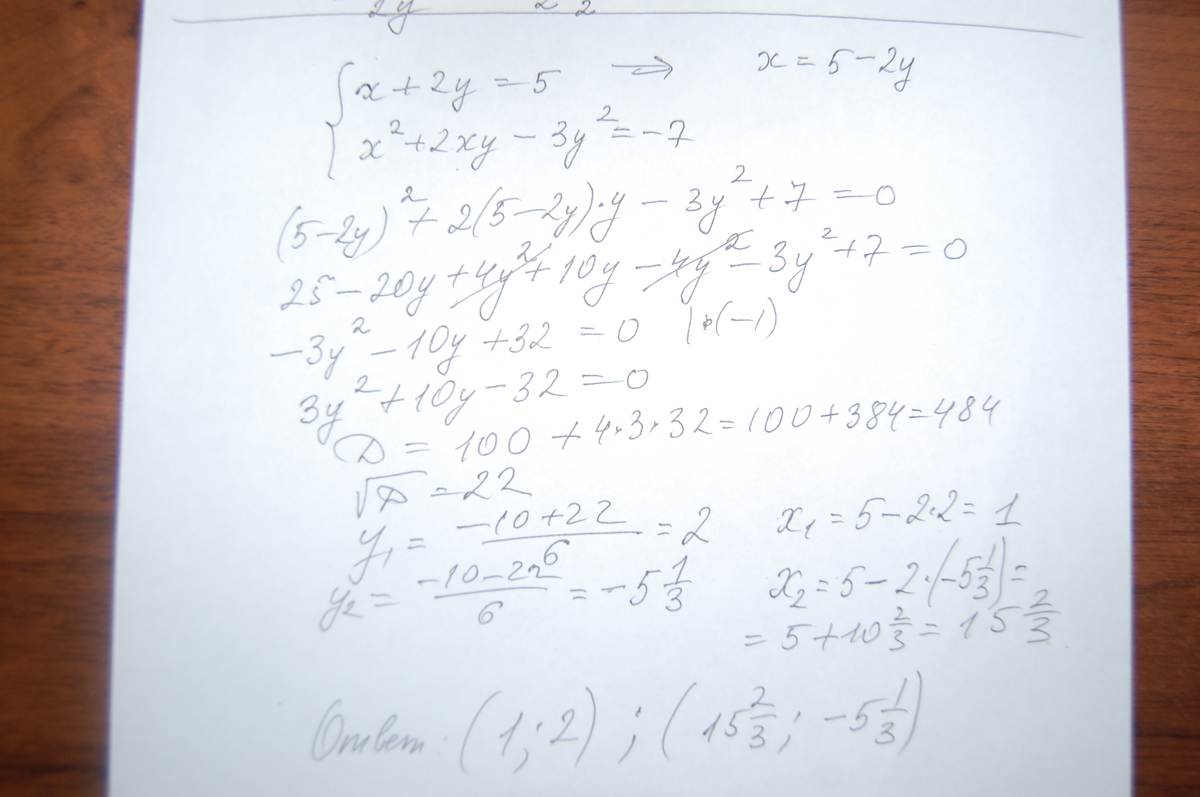 2y 2 2
{ x + 2y = 5 ⇒ x = 5 - 2y
x² + 2xy - 3y² = -7
(5-2y)² + 2(5-2y)·y - 3y² + 7 = 0
25 - 20y + 4y² + 10y - 4y² - 3y² + 7 = 0
-3y² - 10y + 32 = 0 |·(-1)
3y² + 10y - 32 = 0
D = 100 + 4·3·32 = 100 + 384 = 484
√D = 22
y₁ = (-10+22)/6 = 2 x₁ = 5 - 2·2 = 1
y₂ = (-10-22)/6 = -5 1/3 x₂ = 5 - 2·(-5 1/3) =
= 5 + 10 2/3 = 15 2/3
Ответ: (1; 2) ; (15 2/3 ; -5 1/3)